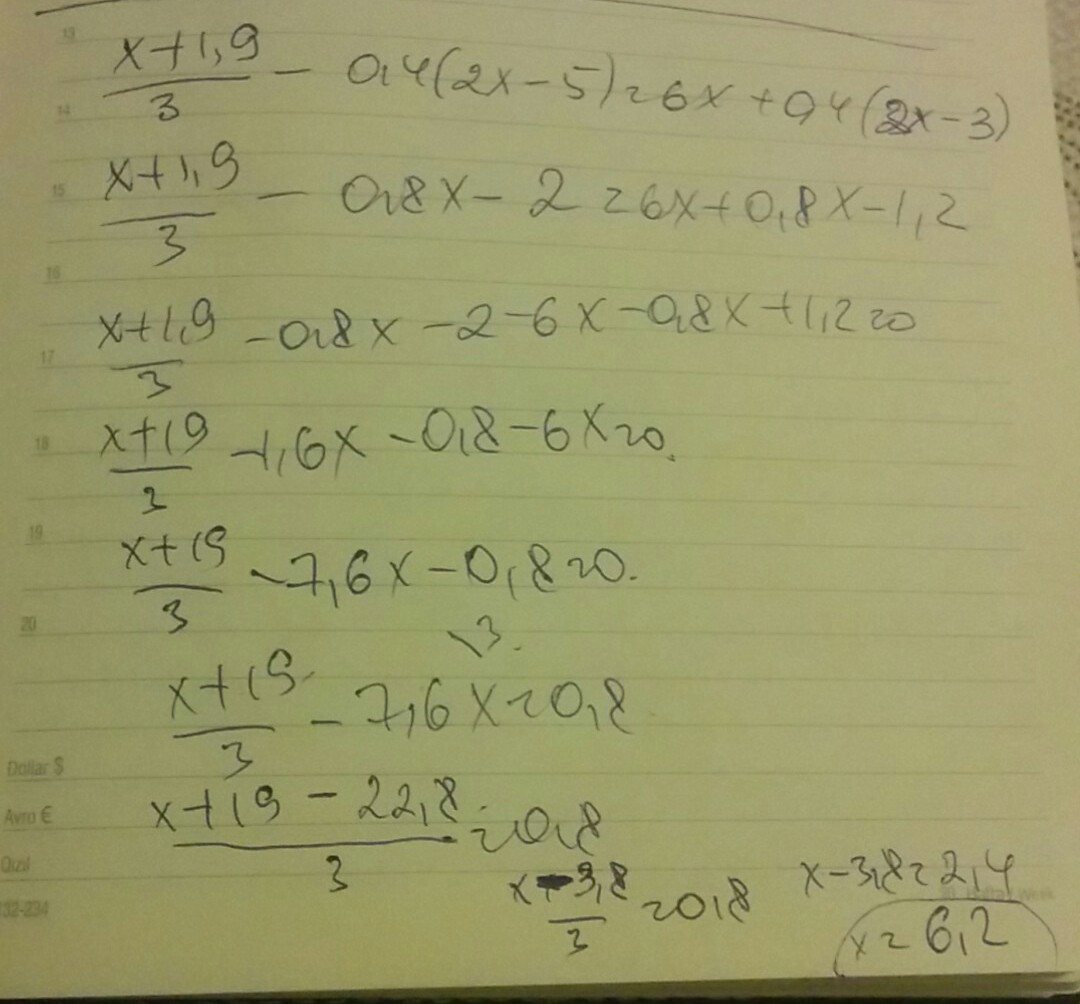 13
x+1,9/3 - 0,4(2x-5)=6x+0,4(2x-3)
14
15
x+1,9/3 - 0,8x-2=6x+0,8x-1,2
16
x+1,9/3 -0,8x-2-6x-0,8x+1,2=0
17
18
x+19/3 -1,6x-0,8-6x=0.
19
x+19/3 -7,6x-0,8=0.
20
\3.
x+19/3 - 7,6x=0,8
Dollar $
x+19-22,8/3=0,8
Avro €
Qızıl
x-3,8/3=0,8
x-3,8=2,4
132-234
x=6,2